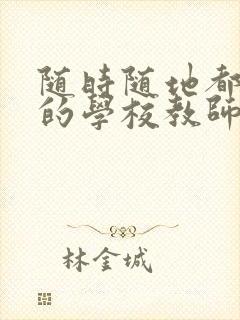 随時随地都
的學校教師
林金城